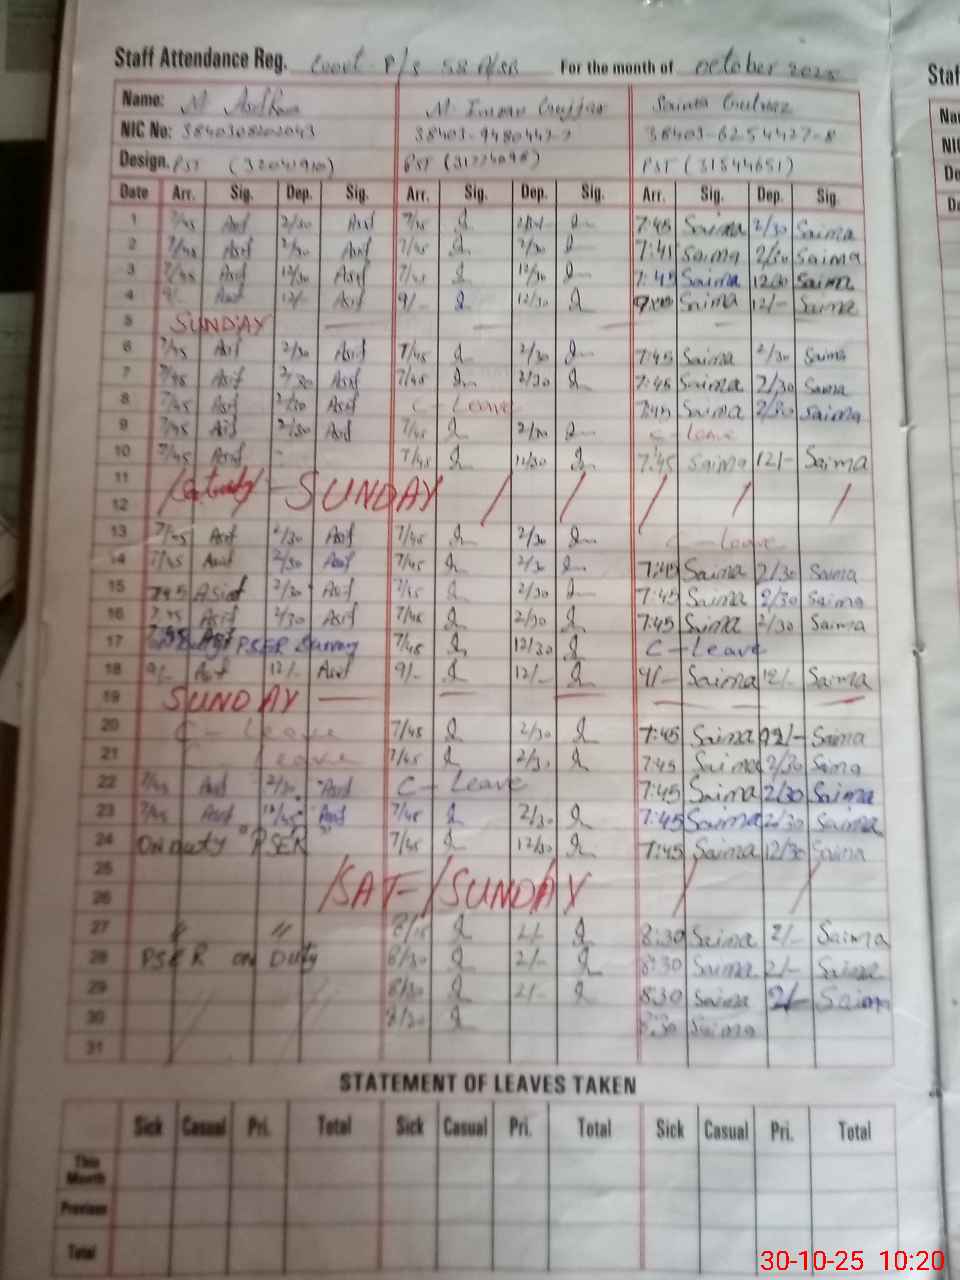 Staff Attendance Reg. Govt P/S 58 A/SB For the month of October 2025
Name: M Asif M. Imran Gujjar Saima Gulnaz
NIC No: 3840308202043 38403-9480447-7 38403-6254427-8
Design. PST (32041910) PST (31774098) PST (31544651)
Date Arr. Sig. Dep. Sig. Arr. Sig. Dep. Sig. Arr. Sig. Dep. Sig.
1 7/45 Asif 2/30 Asif 7/45 7:45 Saima 2/30 Saima
2 7/45 Asif 2/30 Asif 7/45 2/30 7:45 Saima 2/30 Saima
3 7/45 Asif 12/30 Asif 7/45 12/30 7:45 Saima 12/30 Saima
4 9/- Asif 12/- Asif 9/- 12/30 9:00 Saima 12/- Saima
5 SUNDAY
6 7/45 Asif 2/30 Asif 7/45 2/30 7:45 Saima 2/30 Saima
7 7/45 Asif 2/30 Asif 7/45 2/30 7:45 Saima 2/30 Saima
8 7/45 Asif 2/30 Asif C-Leave 7:45 Saima 2/30 Saima
9 7/45 Asif 2/30 Asif 7/45 2/30 C-Leave
10 7/45 Asif 7/45 12/30 7:45 Saima 12/- Saima
11 SUNDAY
12
13 7/45 Asif 2/30 Asif 7/45 2/30 C-Leave
14 7/45 Asif 2/30 Asif 7/45 2/30 7:45 Saima 2/30 Saima
15 7:45 Asif 2/30 Asif 7/45 2/30 7:45 Saima 2/30 Saima
16 7/45 Asif 2/30 Asif 7/45 2/30 7:45 Saima 2/30 Saima
17 PSER Survey 7/45 12/30 C-Leave
18 9/- Asif 12/- Asif 9/- 12/- 9/- Saima 12/- Saima
19 SUNDAY
20 C-Leave 7/45 2/30 7:45 Saima Saima
21 C-Leave 7/45 2/30 7:45 Saima 2/30 Saima
22 7/45 Asif 2/30 Asif C-Leave 7:45 Saima 2/30 Saima
23 7/45 Asif 12/45 Asif 7/45 2/30 7:45 Saima 2/30 Saima
24 On duty "PSER" 7/45 12/30 7:45 Saima 12/30 Saima
25 /SAT-/SUNDAY
26
27 " " 8/45 2/- 8:30 Saima 2/- Saima
28 PSER on Duty 8/30 2/- 8:30 Saima 2/- Saima
29 8/30 2/- 8:30 Saima 2/- Saima
30 8/30 8:30 Saima
31
STATEMENT OF LEAVES TAKEN
Sick Casual Pri. Total Sick Casual Pri. Total Sick Casual Pri. Total
This Month
Previous
Total
30-10-25 10:20
Staf
Na
NIC
De
D